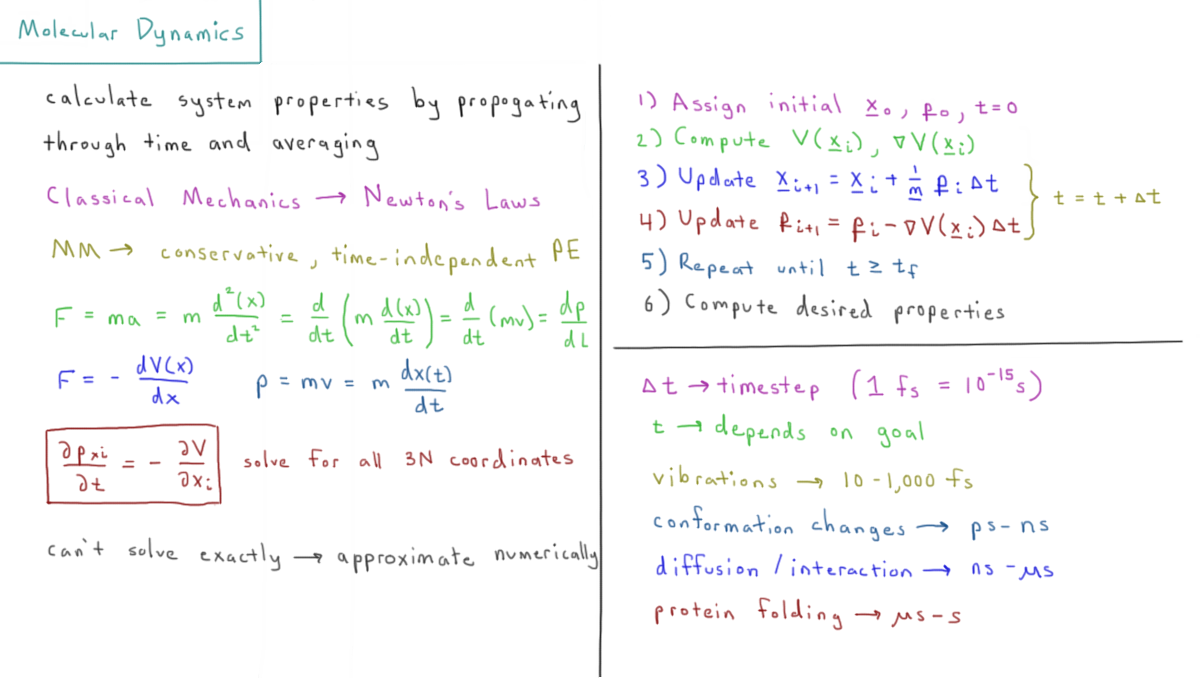 Molecular Dynamics
calculate system properties by propogating
through time and averaging
Classical Mechanics → Newton's Laws
MM → conservative, time-independent PE
F = ma = m d²(x)/dt² = d/dt (m d(x)/dt) = d/dt (mv) = dp/dt
F = - dV(x)/dx    p = mv = m dx(t)/dt
∂p_xi/∂t = - ∂V/∂x_i    solve for all 3N coordinates
can't solve exactly → approximate numerically
1) Assign initial x₀, p₀, t=0
2) Compute V(x_i), ∇V(x_i)
3) Update x_i+1 = x_i + 1/m p_i Δt
4) Update p_i+1 = p_i - ∇V(x_i) Δt } t = t + Δt
5) Repeat until t ≥ t_f
6) Compute desired properties
Δt → timestep (1 fs = 10⁻¹⁵ s)
t → depends on goal
vibrations → 10 - 1,000 fs
conformation changes → ps - ns
diffusion / interaction → ns - μs
protein folding → μs - s